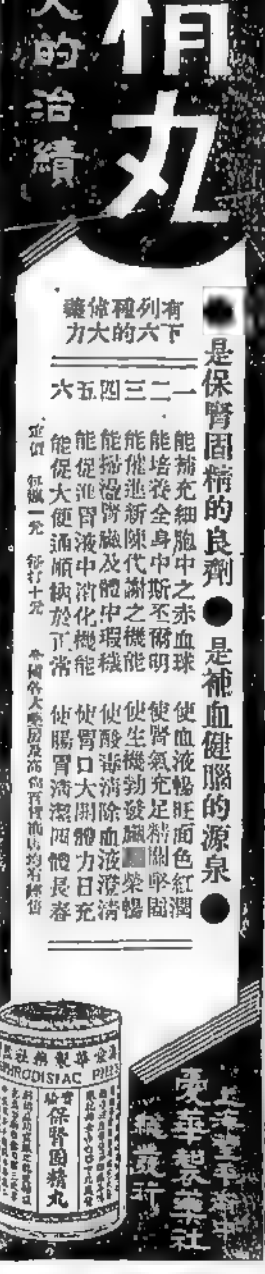 丸
的治績
●是保腎固精的良劑●是補血健腦的源泉●
有下
列六
種的
偉大
藥力
一 能補充細胞中之赤血球 使血液暢旺面色紅潤
二 能培養全身中斯丕爾明 使腎氣充足精關牢固
三 能催進新陳代謝之機能 使生機勃發 榮暢
四 能掃除腎臟及體中瑕穢 使酸毒清除血液澄清
五 能促進胃液中消化機能 使胃口大開體力日充
六 能促大便通順納於正常 使腸胃清潔四體長春
定價 每瓶一元 每打十元 全國各大藥房及 百貨商店均有經售
愛華製藥社
PHRODISIAC PILLS
保腎固精丸
上海
愛華製藥社
發行